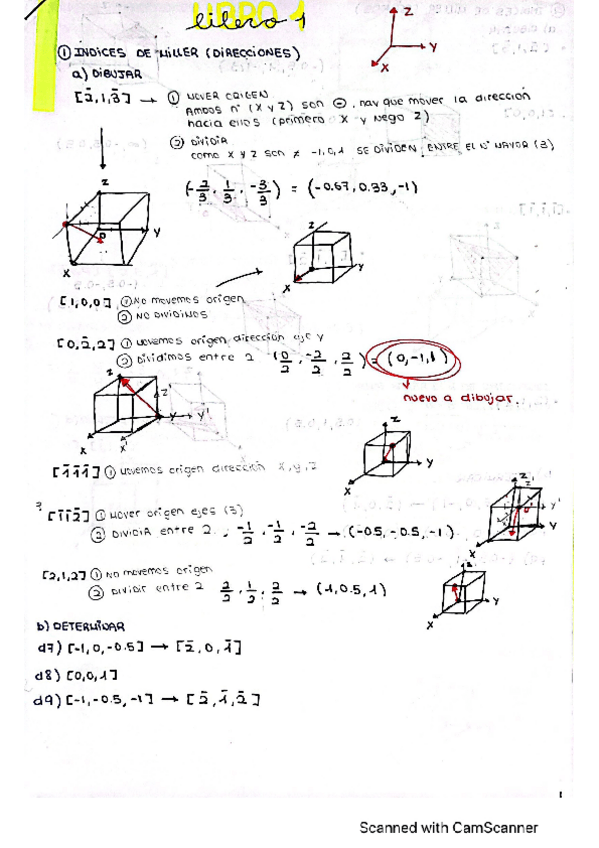 LIBRO 1
① ÍNDICES DE MILLER (DIRECCIONES)
a) DIBUJAR
[2̄,1,3̄] → ① MOVER ORIGEN.
Ambos nº (X y Z) son ⊖, hay que mover la dirección
hacia ellos (primero X y luego Z)
② DIVIDIR
como X y Z son ≠ -1,0,1 SE DIVIDEN ENTRE EL Nº MAYOR (3)
(-2/3, 1/3, -3/3) = (-0.67, 0.33, -1)
[1,0,0] ① No movemos origen
② NO DIVIDIMOS
[0,2̄,2] ① Movemos origen dirección eje Y
② Dividimos entre 2 (0/2, -2/2, 2/2) = (0,-1,1)
nuevo a dibujar.
[1̄ 1̄ 1̄] ① Movemos origen dirección X,Y,Z
? [1̄ 1̄ 2̄] ① Mover origen ejes (3)
② DIVIDIR entre 2 , -1/2, -1/2, -2/2 → (-0.5, -0.5, -1)
[2,1,2] ① No movemos origen
② Dividir entre 2 2/2, 1/2, 2/2 → (1, 0.5, 1)
b) DETERMINAR
d7) [-1,0,-0.5] → [2̄,0,1̄]
d8) [0,0,1]
d9) [-1,-0.5,-1] → [2̄,1̄,2̄]
1
Scanned with CamScanner